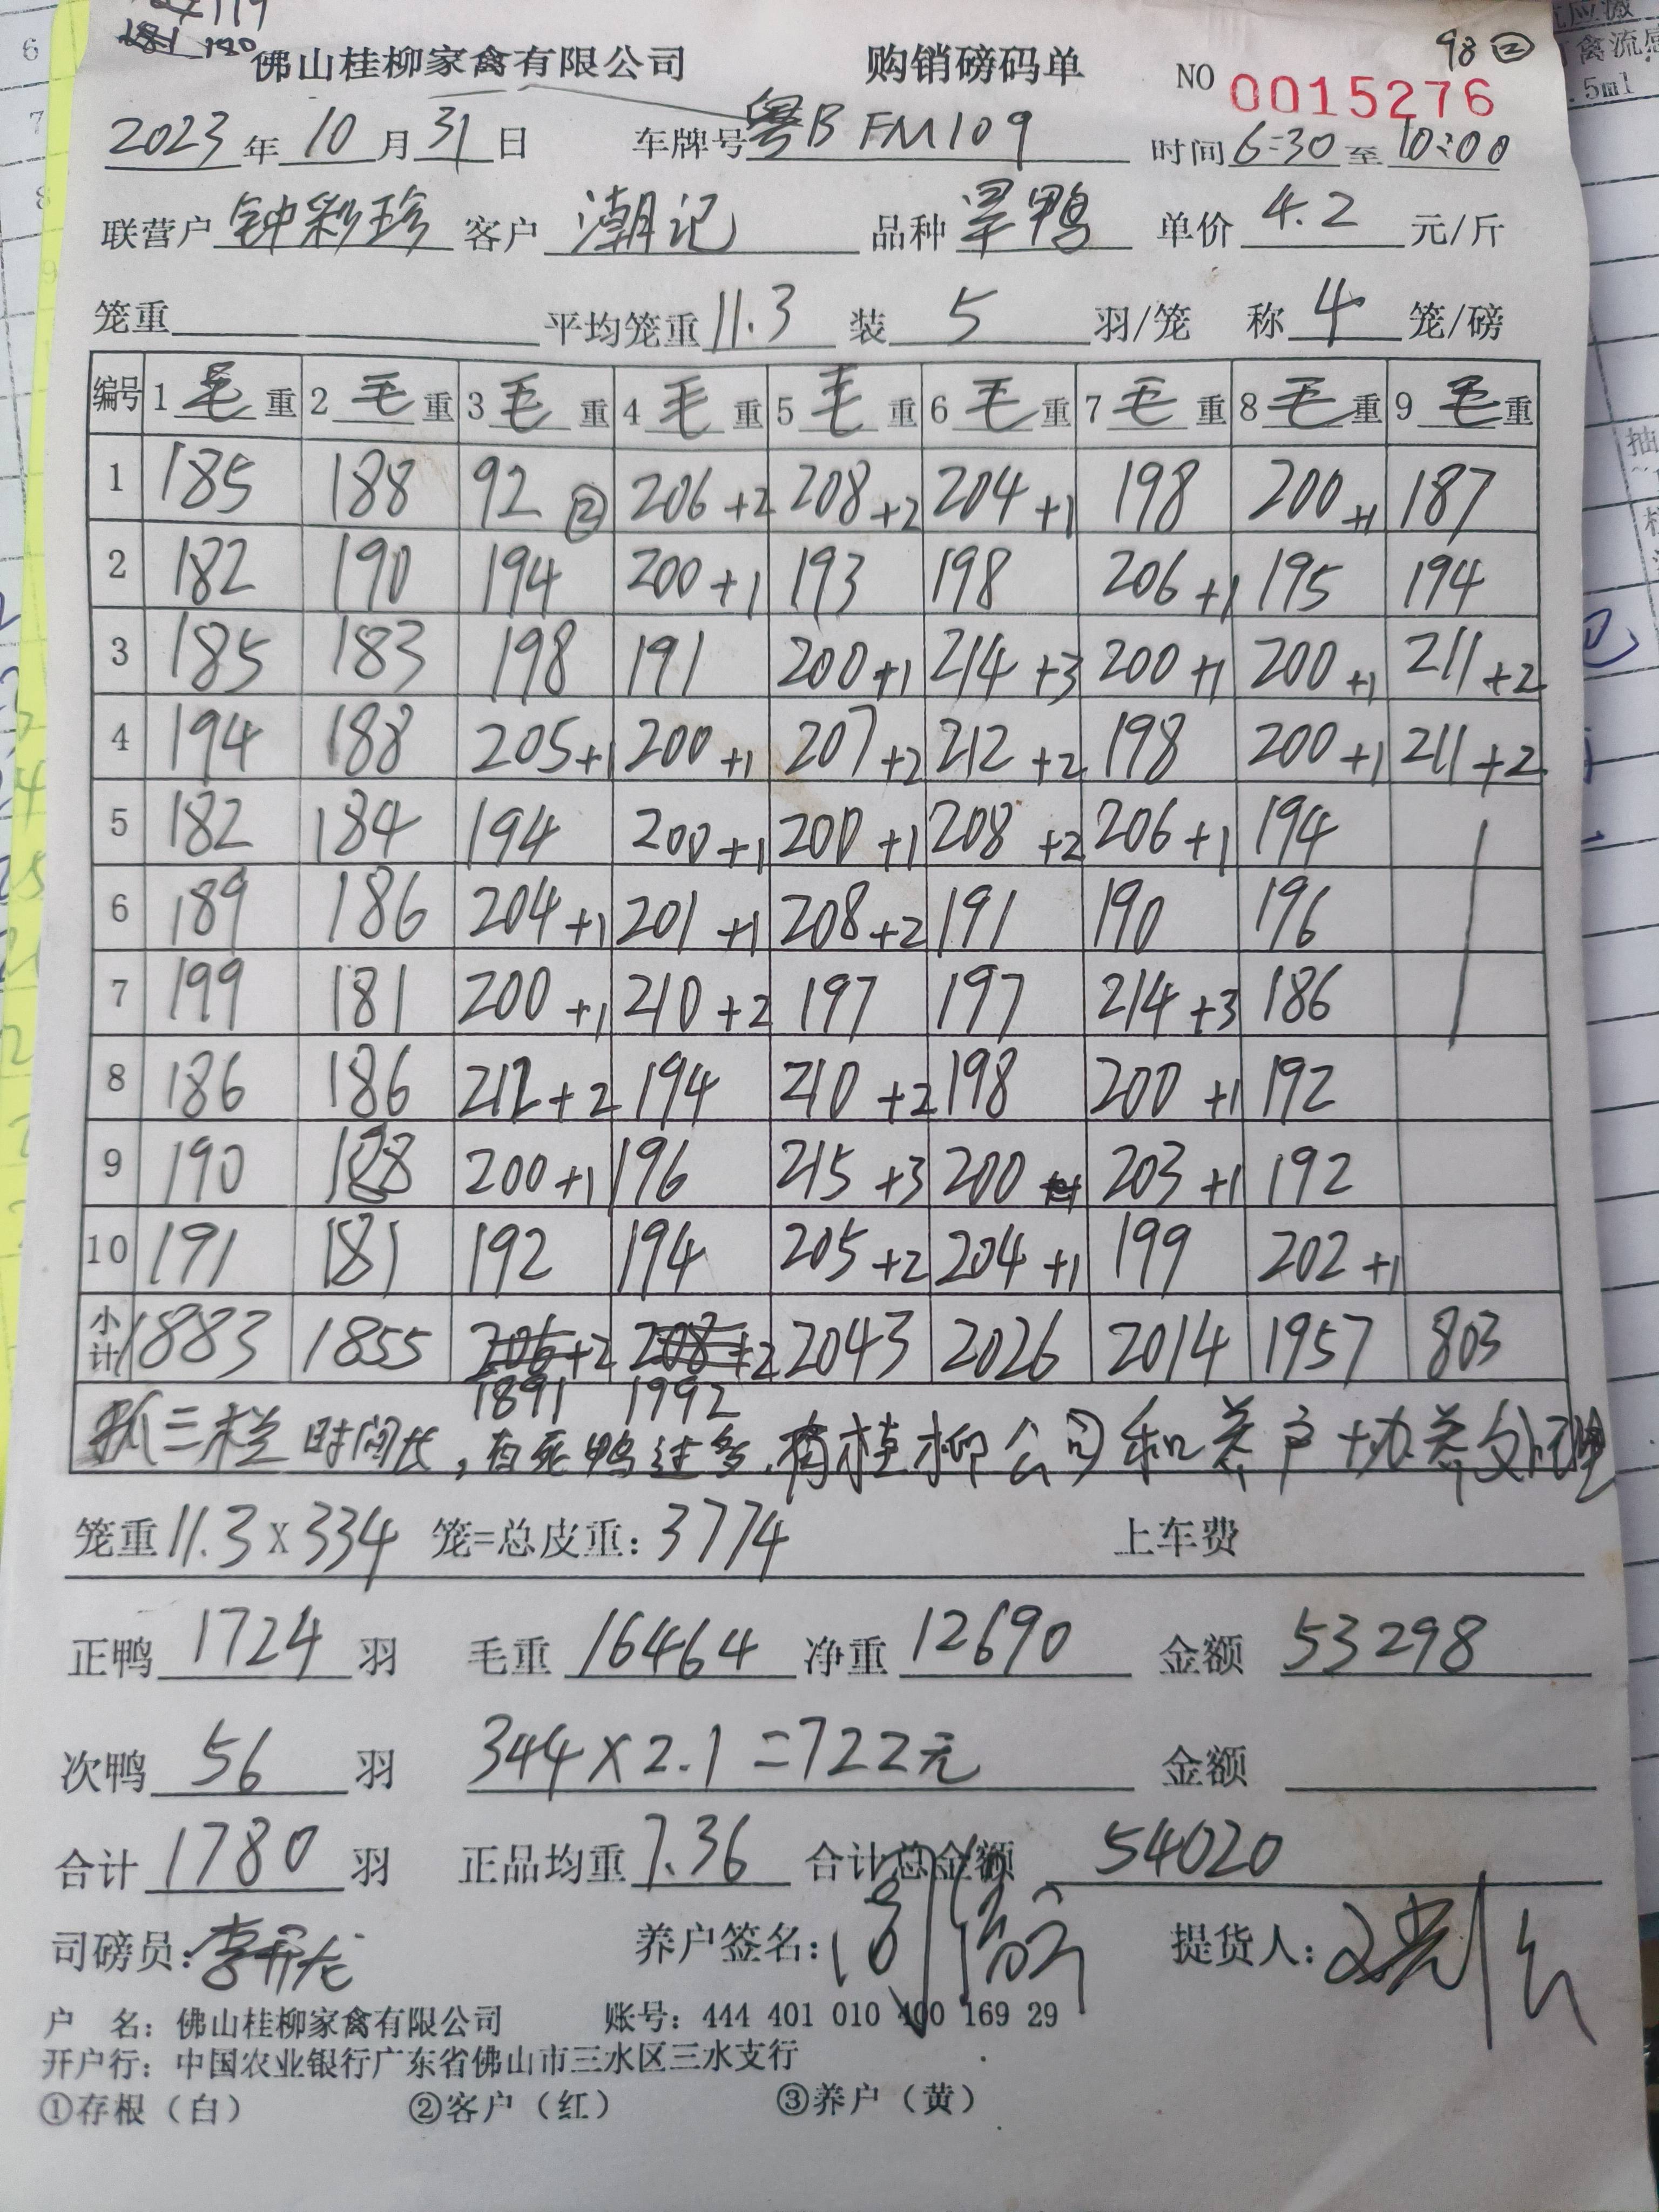 98②
佛山桂柳家禽有限公司 购销磅码单 NO 0015276
2023年10月31日 车牌号粤B FM109 时间6:30至10:00
联营户 钟彩珍 客户 潮记 品种 旱鸭 单价 4.2 元/斤
笼重 平均笼重 11.3 装 5 羽/笼 称 4 笼/磅
编号 1毛重 2毛重 3毛重 4毛重 5毛重 6毛重 7毛重 8毛重 9毛重
1 185 188 92② 206+2 208+2 204+1 198 200+1 187
2 182 190 194 200+1 193 198 206+1 195 194
3 185 183 198 191 200+1 214+3 200+1 200+1 211+2
4 194 188 205+1 200+1 207+2 212+2 198 200+1 211+2
5 182 184 194 200+1 200+1 208+2 206+1 194
6 189 186 204+1 201+1 208+2 191 190 196
7 199 181 200+1 210+2 197 197 214+3 186
8 186 186 212+2 194 210+2 198 200+1 192
9 190 188 200+1 196 215+3 200 203+1 192
10 191 181 192 194 205+2 204+1 199 202+1
小计 1883 1855 206+2 208+2 2043 2026 2014 1957 803
1891 1992
抓三栏时间长,有死鸭过多,有桂柳公司和养户协养处理
笼重 11.3×334 笼=总皮重:3774 上车费
正鸭 1724 羽 毛重 16464 净重 12690 金额 53298
次鸭 56 羽 344×2.1=722元 金额
合计 1780 羽 正品均重 7.36 合计总金额 54020
司磅员:李开龙 养户签名: 提货人:
户 名:佛山桂柳家禽有限公司 账号:444 401 010 400 169 29
开户行:中国农业银行广东省佛山市三水区三水支行
①存根(白) ②客户(红) ③养户(黄)